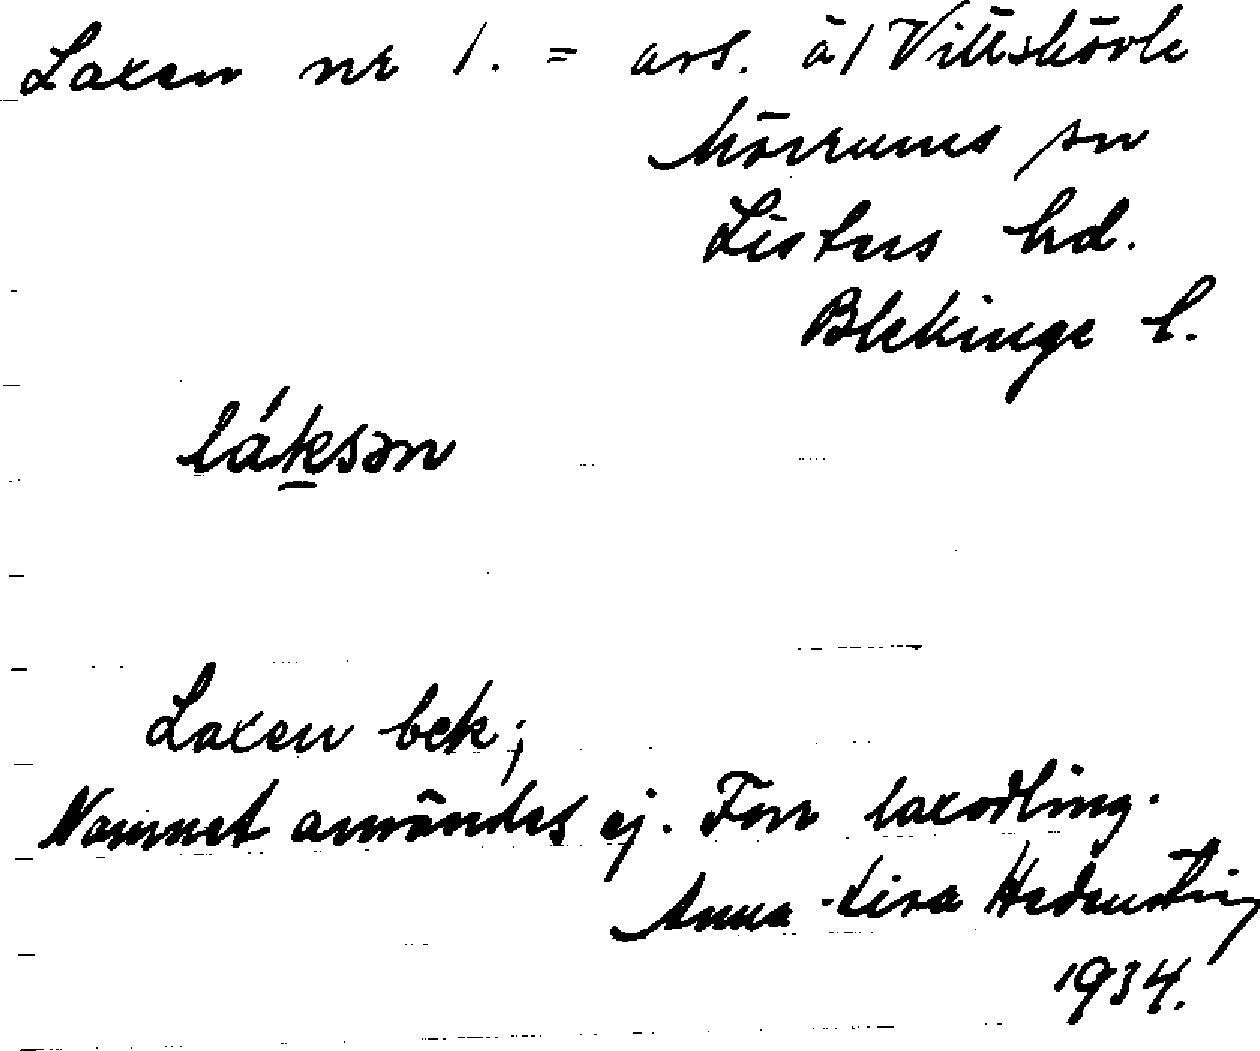 Laxen nr 1. = avs. å 1 Vittskövle
Mörrums sn
Listers hd.
Blekinge l.
láksən
Laxen bek;
Namnet användes ej. Förr laxodling.
Anna-Lisa Hedenstig
1934.